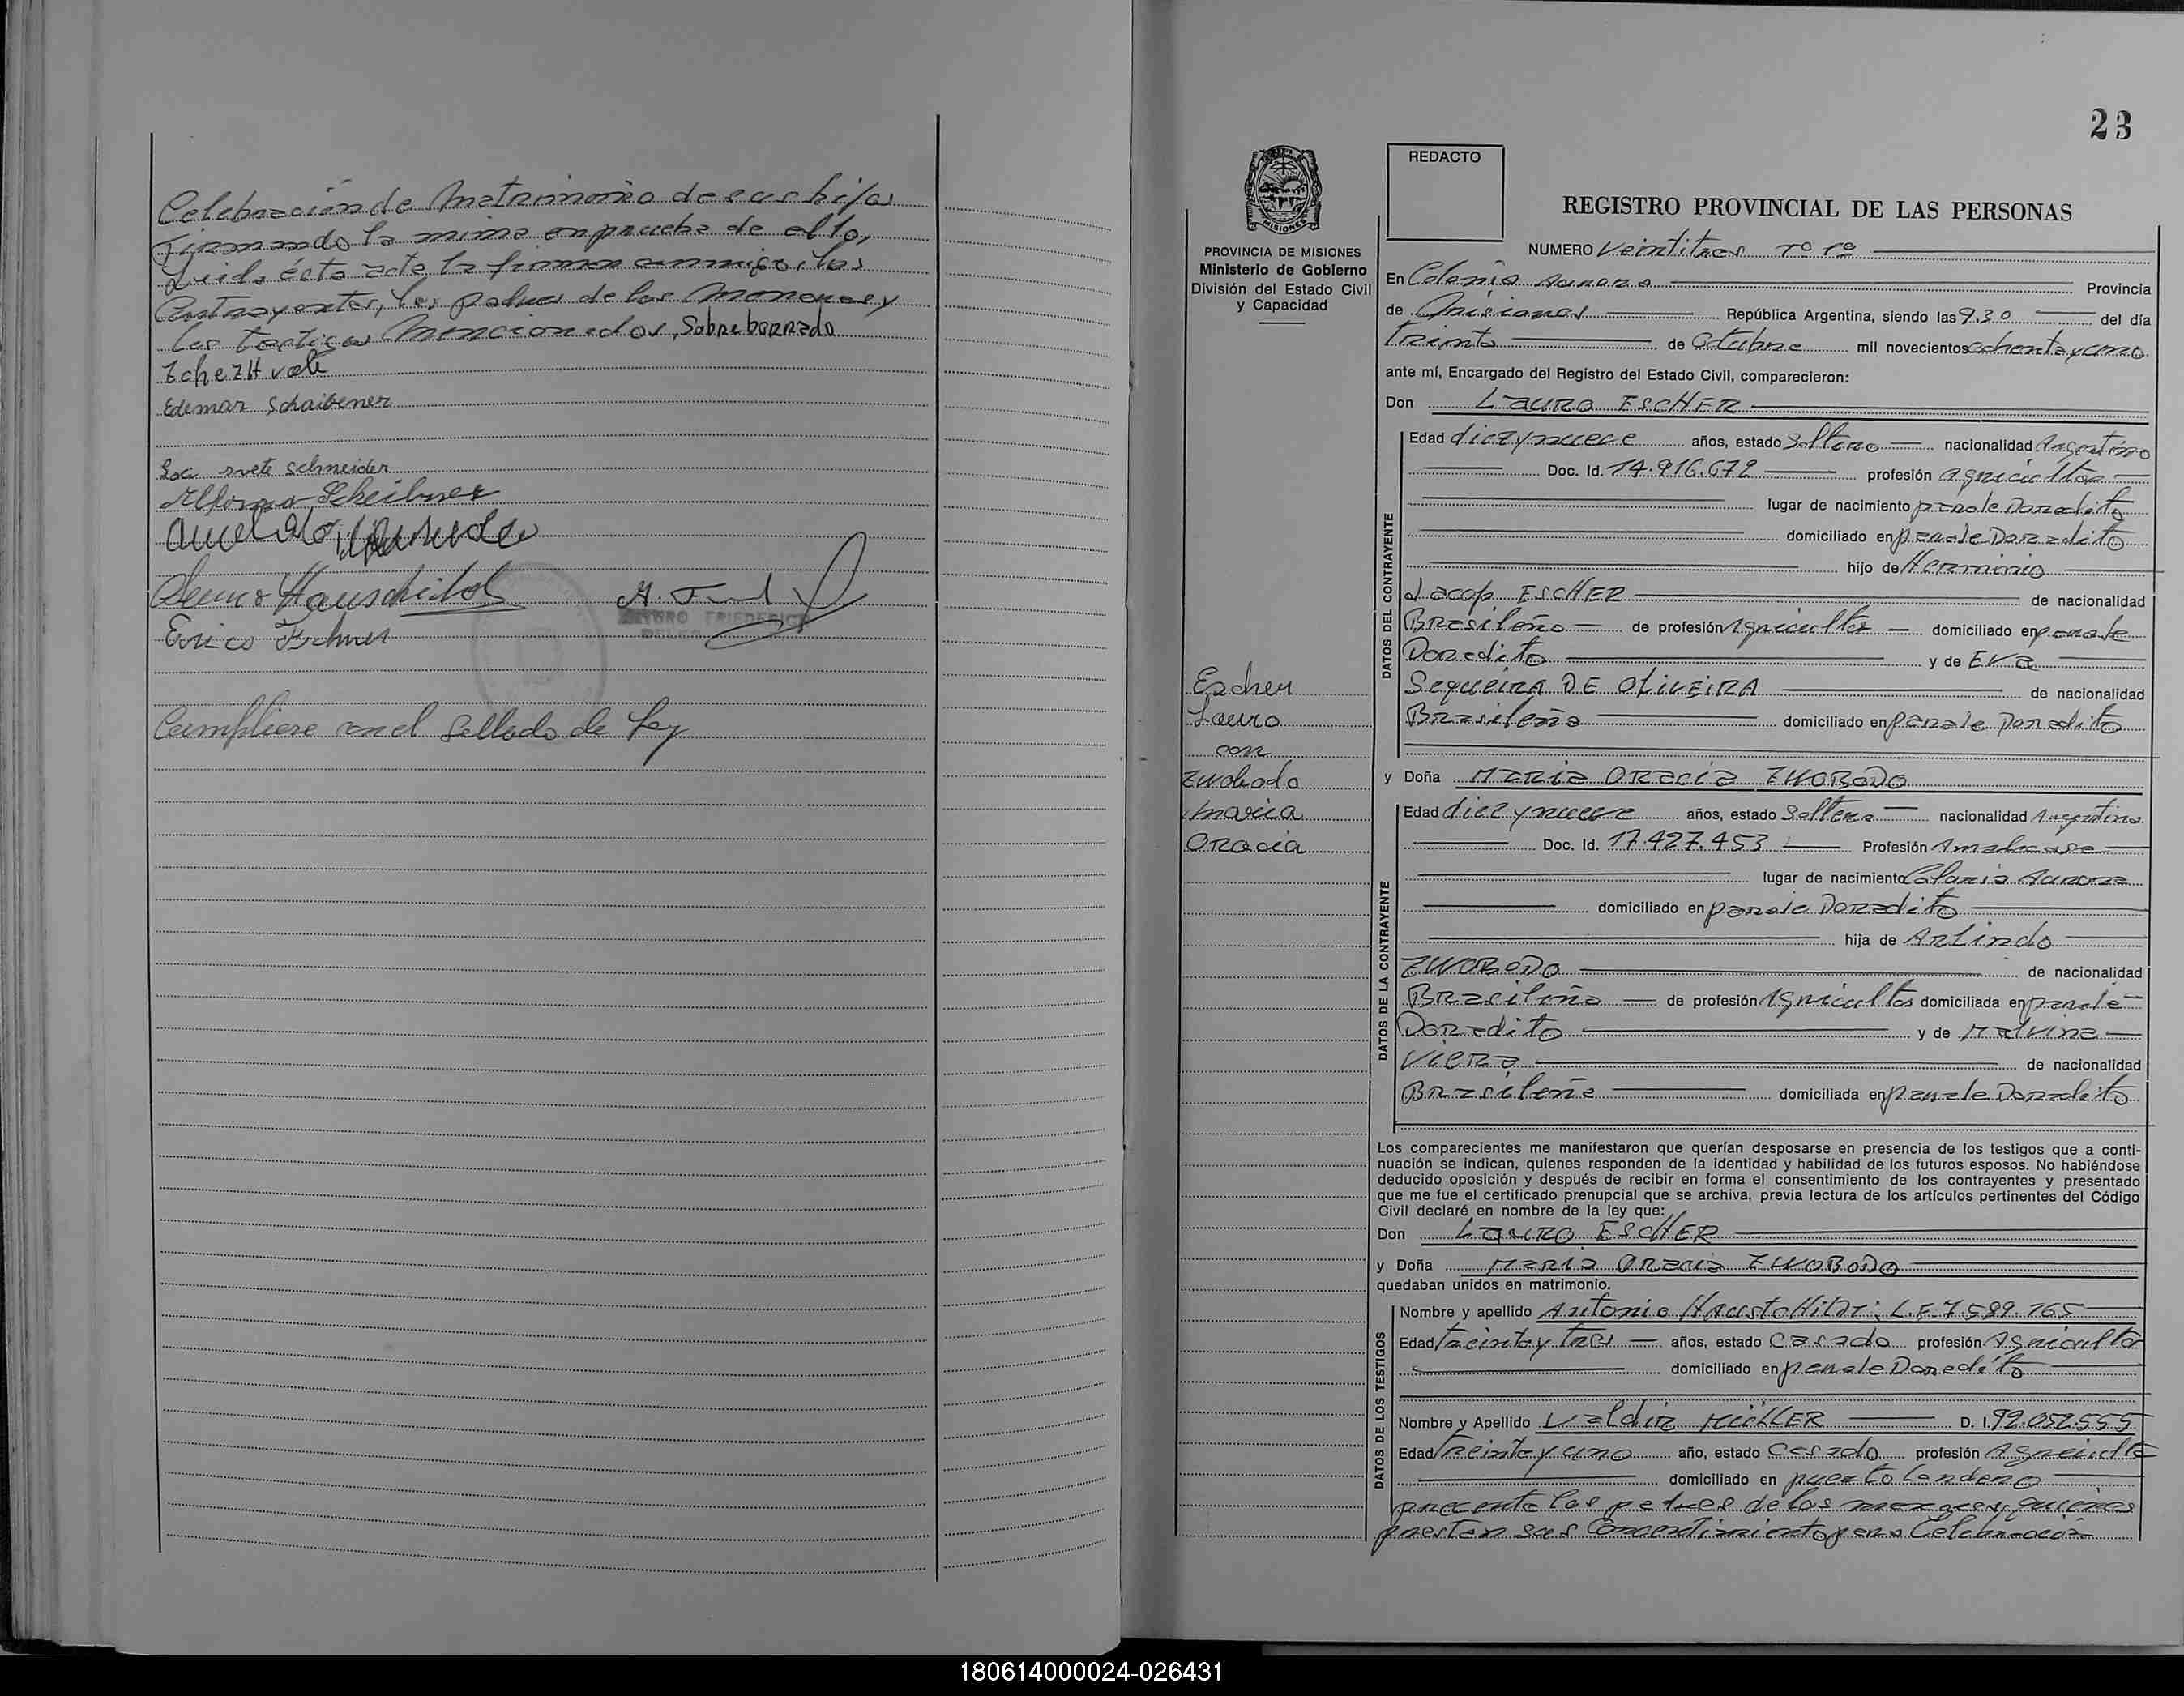 Celebración de Matrimonio de sus hijos
firmando la misma en prueba de ello,
Leida ésta acta la firman conmigo, los
Contrayentes, los padres de los Menores y
los testigos Mencionados, Sobreborrado
vale
Edemar Schaibener
svete schneider
Alfonso Scheibner
Erico
Cumpliere con el Sellado de Ley
23
REDACTO
REGISTRO PROVINCIAL DE LAS PERSONAS
MISIONES
PROVINCIA DE MISIONES
Ministerio de Gobierno
División del Estado Civil
y Capacidad
NUMERO Veintitres Tº 1º
En Colonia Aurora Provincia
de Misiones República Argentina, siendo las 9.30 del día
treinta de Octubre mil novecientos ochenta y uno
ante mí, Encargado del Registro del Estado Civil, comparecieron:
Don LAURO ESCHER
DATOS DEL CONTRAYENTE
Edad diez y nueve años, estado Soltero nacionalidad Argentino
Doc. Id. 14.916.672 profesión Agricultor
lugar de nacimiento panale Doradito
domiciliado en panale Doradito
hijo de Herminio
Jacop ESCHER de nacionalidad
Brasileño de profesión Agricultor domiciliado en panale
Doradito y de EVA
Sequeira DE OLIVEIRA de nacionalidad
Brasileña domiciliado en panale Doradito
Escher
Lauro
con
Zwobodo
Maria
Oracia
y Doña MARIA ORACIA ZWOBODO
DATOS DE LA CONTRAYENTE
Edad diez y nueve años, estado Soltera nacionalidad Argentina
Doc. Id. 17.427.453 Profesión Amadecasa
lugar de nacimiento Colonia Aurora
domiciliado en panale Doradito
hija de Arlindo
ZWOBODO de nacionalidad
Brasileño de profesión Agricultor domiciliada en panale
Doradito y de Malvina
Viera de nacionalidad
Brasileña domiciliada en panale Doradito
Los comparecientes me manifestaron que querían desposarse en presencia de los testigos que a conti-
nuación se indican, quienes responden de la identidad y habilidad de los futuros esposos. No habiéndose
deducido oposición y después de recibir en forma el consentimiento de los contrayentes y presentado
que me fue el certificado prenupcial que se archiva, previa lectura de los artículos pertinentes del Código
Civil declaré en nombre de la ley que:
Don LAURO ESCHER
y Doña MARIA ORACIA ZWOBODO
quedaban unidos en matrimonio.
DATOS DE LOS TESTIGOS
Nombre y apellido Antonio L.E. 7.589.765
Edad treinta y tres años, estado Casado profesión Agricultor
domiciliado en panale Doradito
Nombre y Apellido Valdir MÜLLER D. I. 92.052.555
Edad treinta y uno año, estado Casado profesión Agricultor
domiciliado en puerto Londero
presente los padres de los menores, quienes
prestan sus Consentimiento para Celebración
180614000024-026431